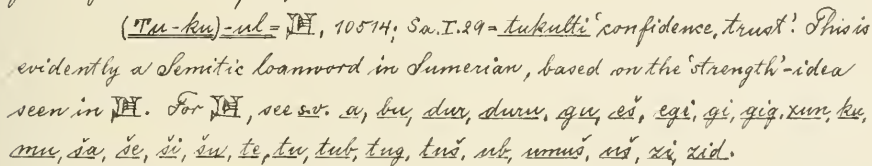 (Tu-ku)-ul = 𒆪, 10514; Sa.I.29 = tukulti 'confidence, trust'. This is
evidently a Semitic loanword in Sumerian, based on the 'strength'-idea
seen in 𒆪. For 𒆪, see s.v. a, bu, dur, duru, gu, eš, egi, gi, gig, xun, ku,
mu, ša, še, ši, šu, te, tu, tub, tug, tuš, ub, umuš, uš, zi, zid.